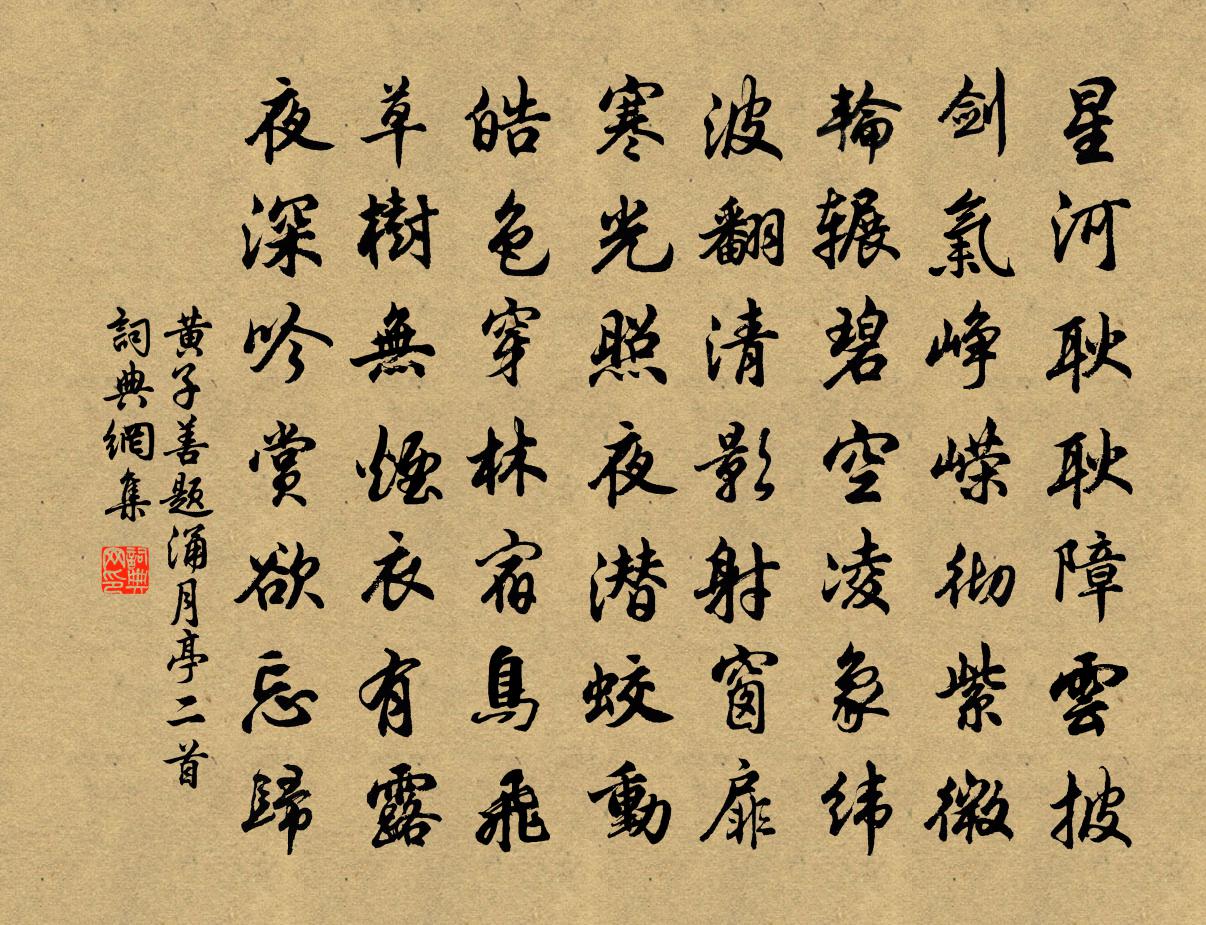 星河耿耿障雲披
劍氣崢嶸徹紫微
輪辗碧空凌象緯
波翻清影射窗扉
寒光照夜潛蛟動
皓色穿林宿鳥飛
草樹無煙衣有露
夜深吟賞欲忘歸
黄子善題涌月亭二首
詞典網集
詞典网印